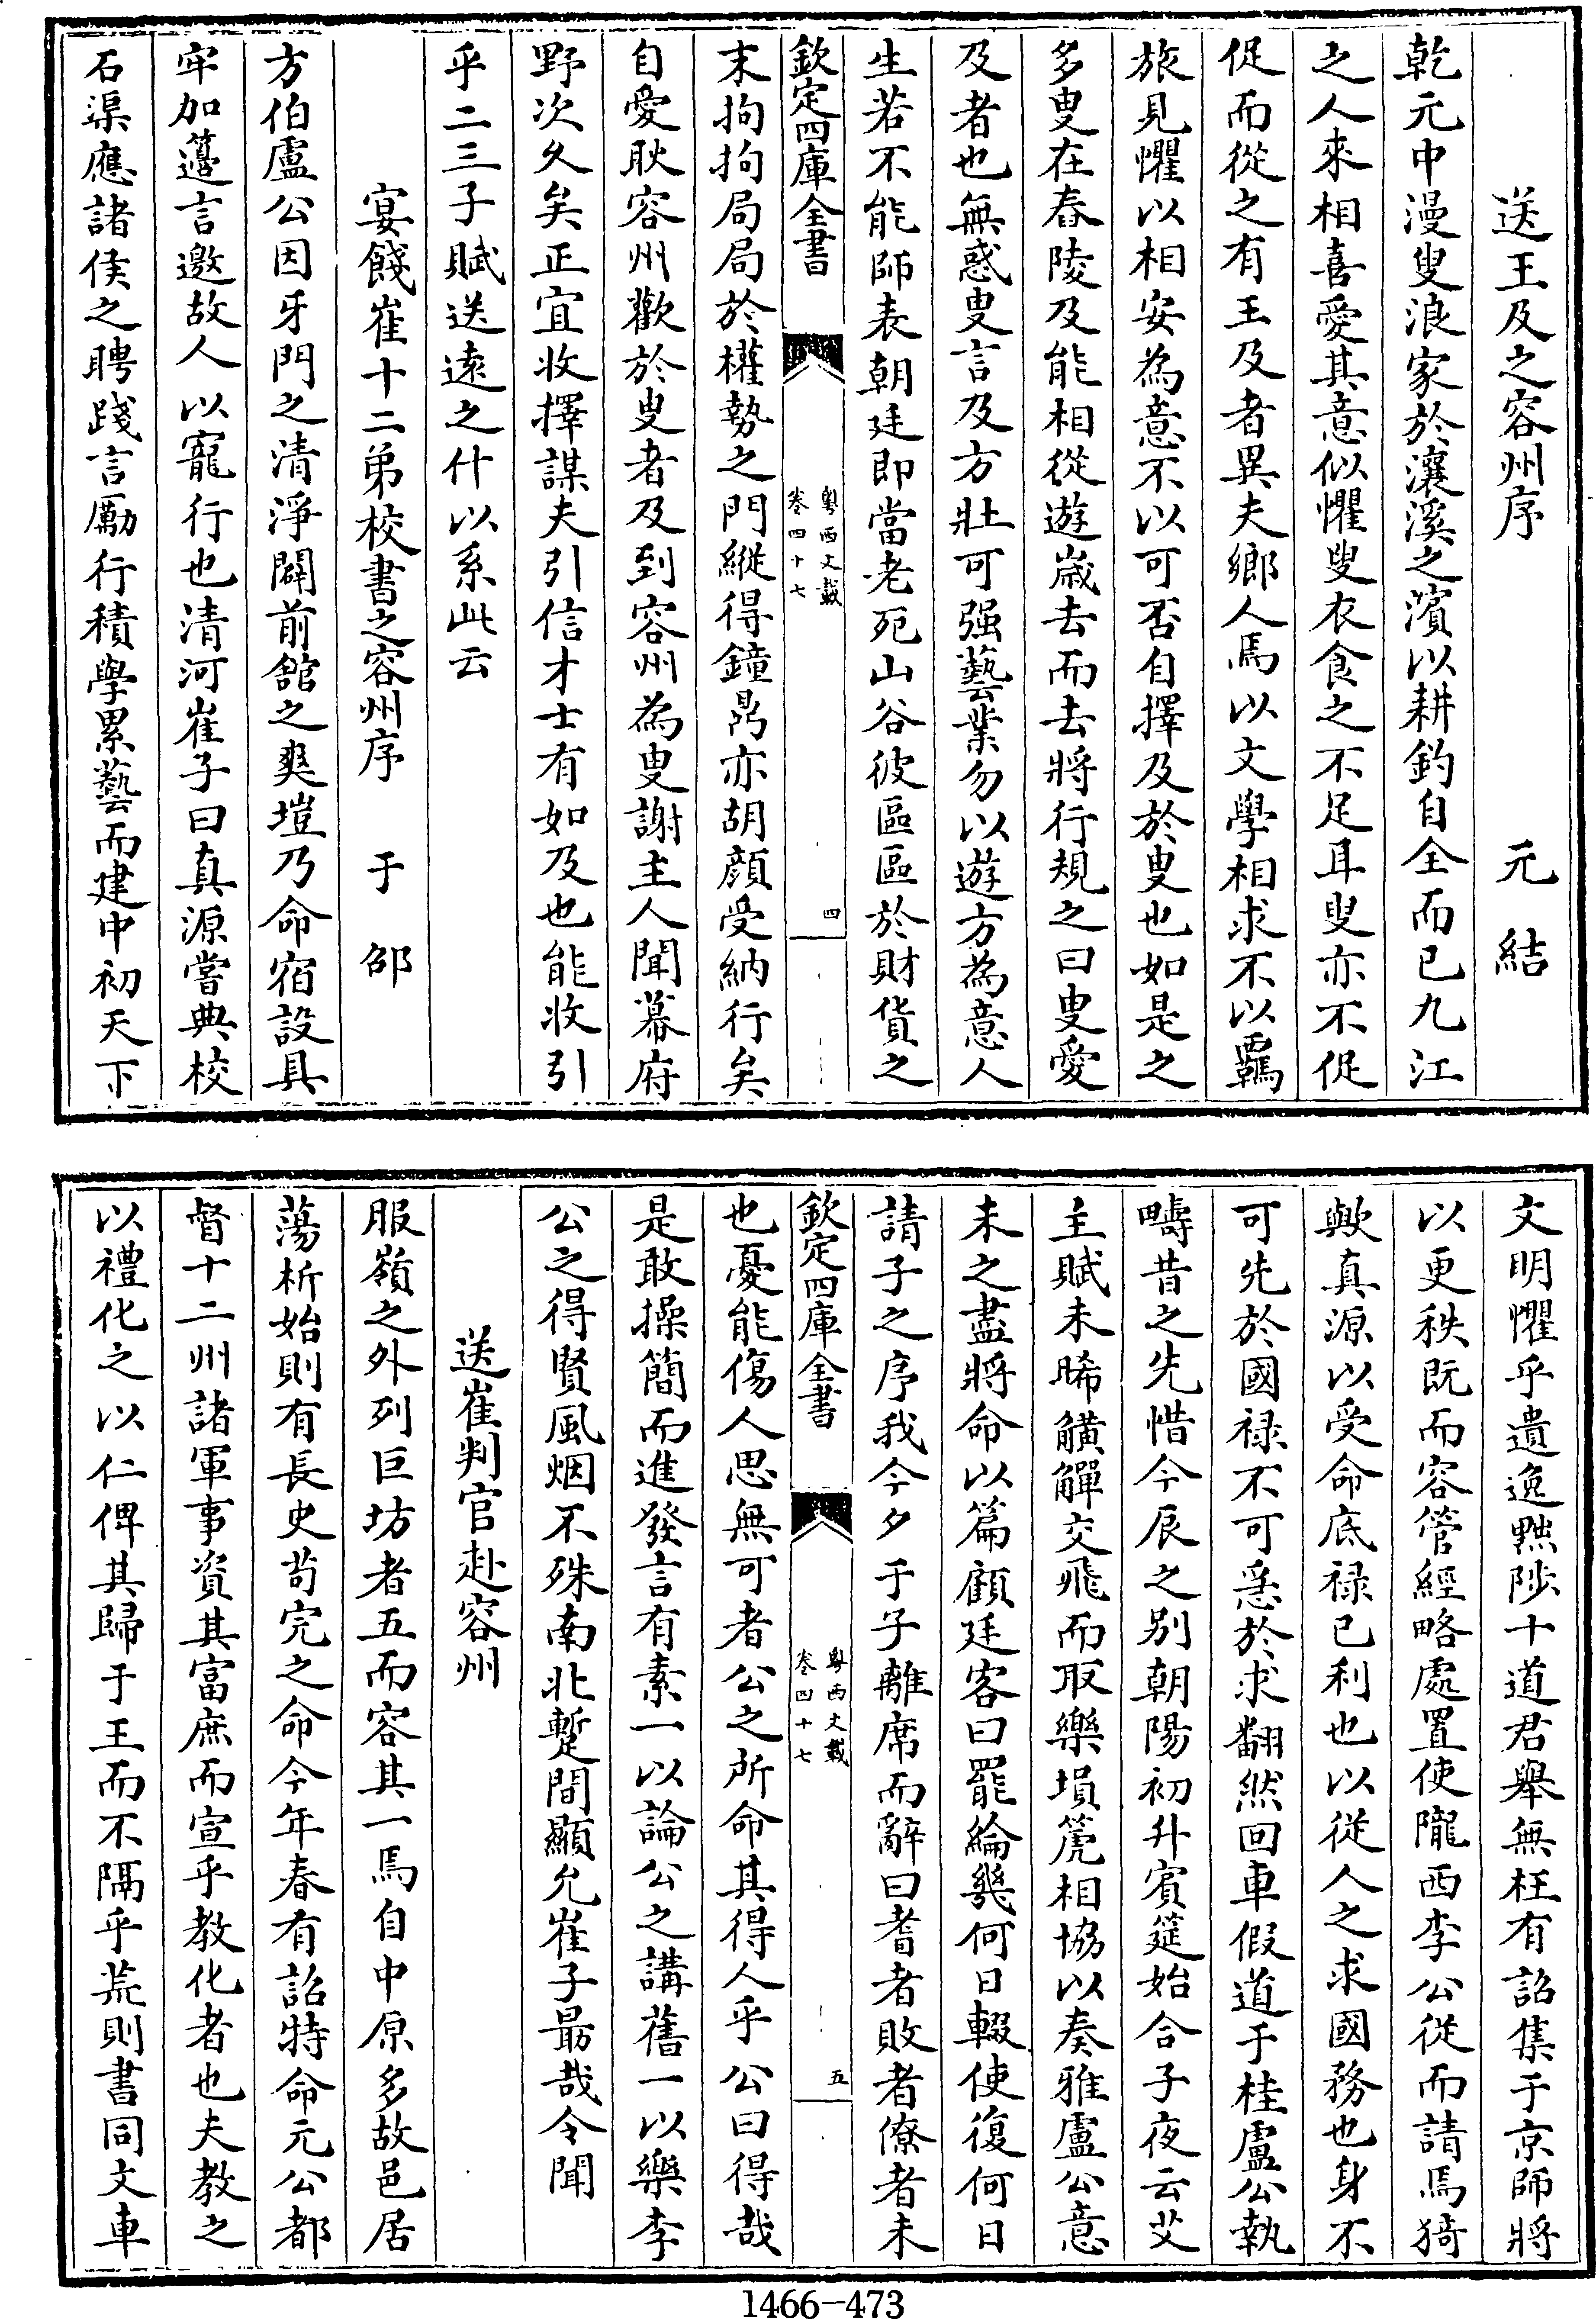 送王及之容州序 元結
乾元中漫叟浪家於瀼溪之濱以耕釣自全而已九江
之人來相喜愛其意似懼叟衣食之不足耳叟亦不促
促而從之有王及者異夫鄉人焉以文學相求不以羈
旅見懼以相安為意不以可否自擇及於叟也如是之
多叟在舂陵及能相從遊歲去而去將行規之曰叟愛
及者也無惑叟言及方壯可强藝業勿以遊方為意人
生若不能師表朝廷即當老死山谷彼區區於財貨之
欽定四庫全書
粤西文載
卷四十七
四
末拘拘局局於權勢之門縱得鐘鼎亦胡顔受納行矣
自愛耿容州歡於叟者及到容州為叟謝主人聞幕府
野次久矣正宜收擇謀夫引信才士有如及也能收引
乎二三子賦送遠之什以系此云
宴餞崔十二弟校書之容州序 于邵
方伯盧公因牙門之清淨闢前館之爽塏乃命宿設具
牢加籩言邀故人以寵行也清河崔子曰真源嘗典校
石渠應諸侯之聘踐言勵行積學累藝而建中初天下
文明懼乎遺逸黜陟十道君舉無枉有詔集于京師將
以更秩既而容管經略處置使隴西李公從而請焉猗
歟真源以受命底禄已利也以從人之求國務也身不
可先於國禄不可忘於求翻然回車假道于桂盧公執
疇昔之先惜今辰之别朝陽初升賓筵始合子夜云艾
主賦未晞觵觶交飛而取樂塤箎相協以奏雅盧公意
未之盡將命以篇顧廷客曰罷綸幾何日輟使復何日
請子之序我今夕于子離席而辭曰耆者敗者僚者未
欽定四庫全書
粤西文載
卷四十七
五
也憂能傷人思無可者公之所命其得人乎公曰得哉
是敢操簡而進發言有素一以論公之講舊一以樂李
公之得賢風烟不殊南北蹔間顯允崔子最哉令聞
送崔判官赴容州
服嶺之外列巨坊者五而容其一焉自中原多故邑居
蕩析始則有長史苟完之命今年春有詔特命元公都
督十二州諸軍事資其富庶而宣乎教化者也夫教之
以禮化之以仁俾其歸于王而不隔乎荒則書同文車
1466-473